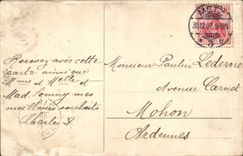 METZ
30.12.07. 9-10 V
Recevez avec cette
carte ainsi que
Mme et Melle et
Mad
mes
meilleurs souhaits
Charles
Monsieur Paulin Lederne
Avenue Carnot
Mohon
Ardennes